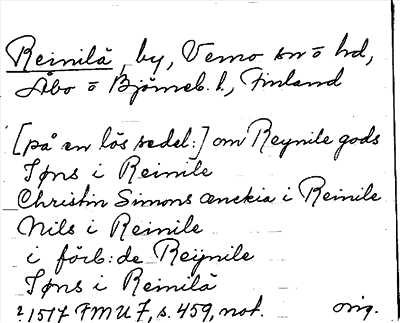 Reinilä, by, Vemo sn o hd,
Åbo o Björneb. l., Finland
[på en lös sedel:] om Reynile gods
Jøns i Reinile
Christin Simons ænckia i Reinile
Nils i Reinile
i förb: de Reÿnile
Jøns i Reinilä
? 1517 FMU 7, s. 459, not. orig.